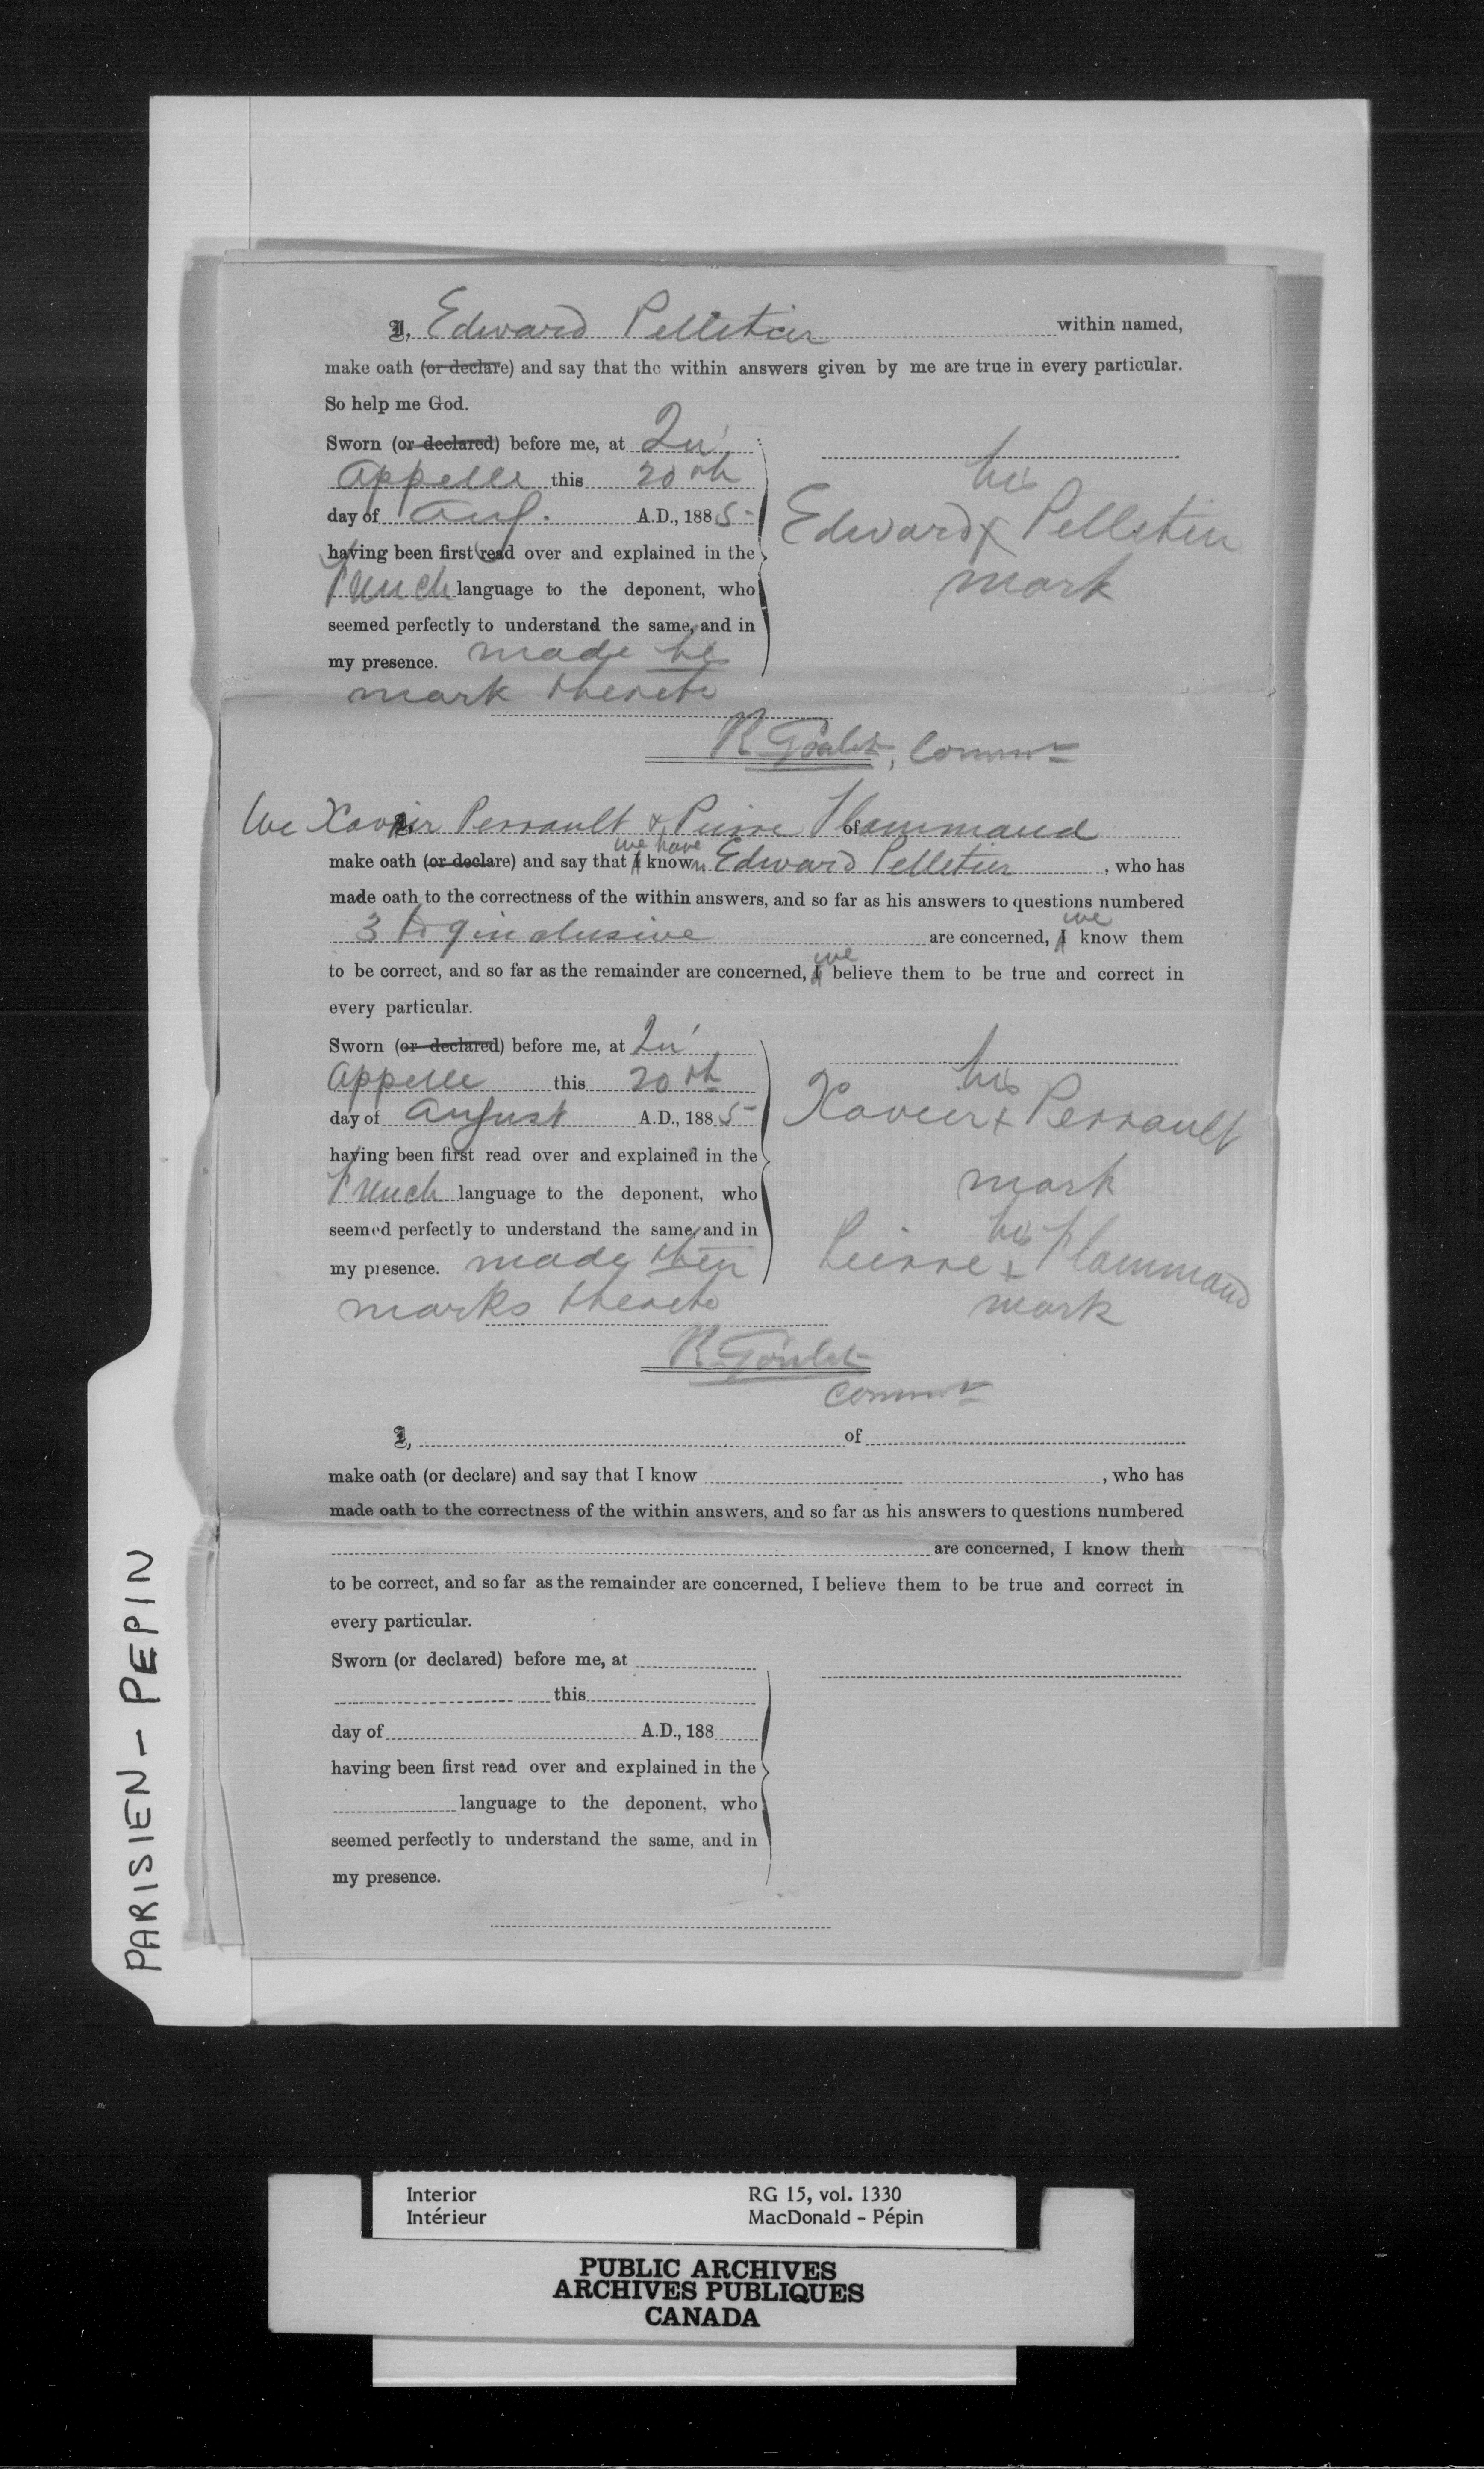 I, Edward Pelletier within named,
make oath (or declare) and say that the within answers given by me are true in every particular.
So help me God.
Sworn (or declared) before me, at Qu'
Appelle this 20th
day of Aug. A.D., 1885
having been first read over and explained in the
French language to the deponent, who
seemed perfectly to understand the same, and in
my presence. made his
mark thereto
his
Edward x Pelletier
mark
R Goulet, Commr
We Xavier Perrault & Pierre Flammand of
make oath (or declare) and say that I we have known Edward Pelletier, who has
made oath to the correctness of the within answers, and so far as his answers to questions numbered
3 to 9 inclusive are concerned, I we know them
to be correct, and so far as the remainder are concerned, I we believe them to be true and correct in
every particular.
Sworn (or declared) before me, at Qu'
Appelle this 20th
day of August A.D., 1885
having been first read over and explained in the
French language to the deponent, who
seemed perfectly to understand the same, and in
my presence. made their
marks thereto
his
Xavier x Perrault
mark
his
Pierre x Flammand
mark
R Goulet
Commr
I, of
make oath (or declare) and say that I know , who has
made oath to the correctness of the within answers, and so far as his answers to questions numbered
are concerned, I know them
to be correct, and so far as the remainder are concerned, I believe them to be true and correct in
every particular.
Sworn (or declared) before me, at
this
day of A.D., 188
having been first read over and explained in the
language to the deponent, who
seemed perfectly to understand the same, and in
my presence.
PARISIEN - PEPIN
Interior RG 15, vol. 1330
Intérieur MacDonald - Pépin
PUBLIC ARCHIVES
ARCHIVES PUBLIQUES
CANADA